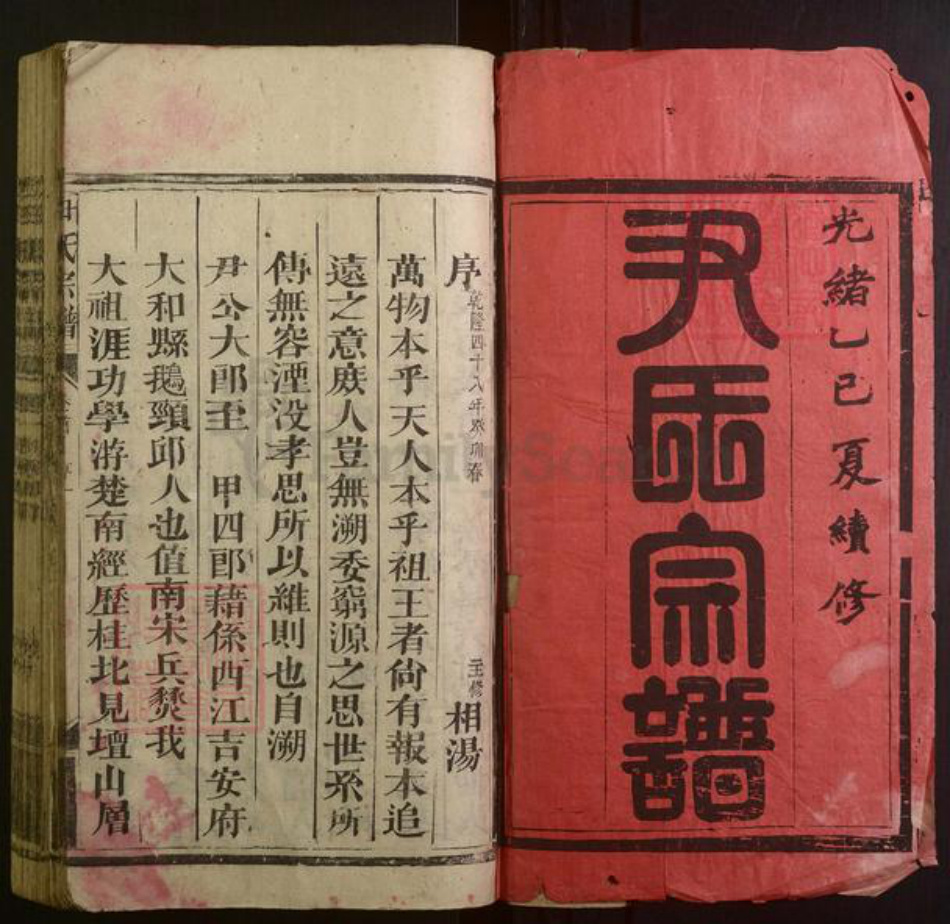 光緒乙巳夏續修
尹氏宗譜
序 乾隆四十八年癸卯春 主修 相湯
萬物本乎天人本乎祖王者尙有報本追
遠之意庻人豈無溯委窮源之思世系所
傳無容湮没孝思所以維則也自溯
尹公大郎至 甲四郎藉係西江吉安府
大和縣鵝頸邱人也值南宋兵燹我
大祖涯功學游楚南經歷桂北見壇山層
尹氏宗譜
FamilySearch